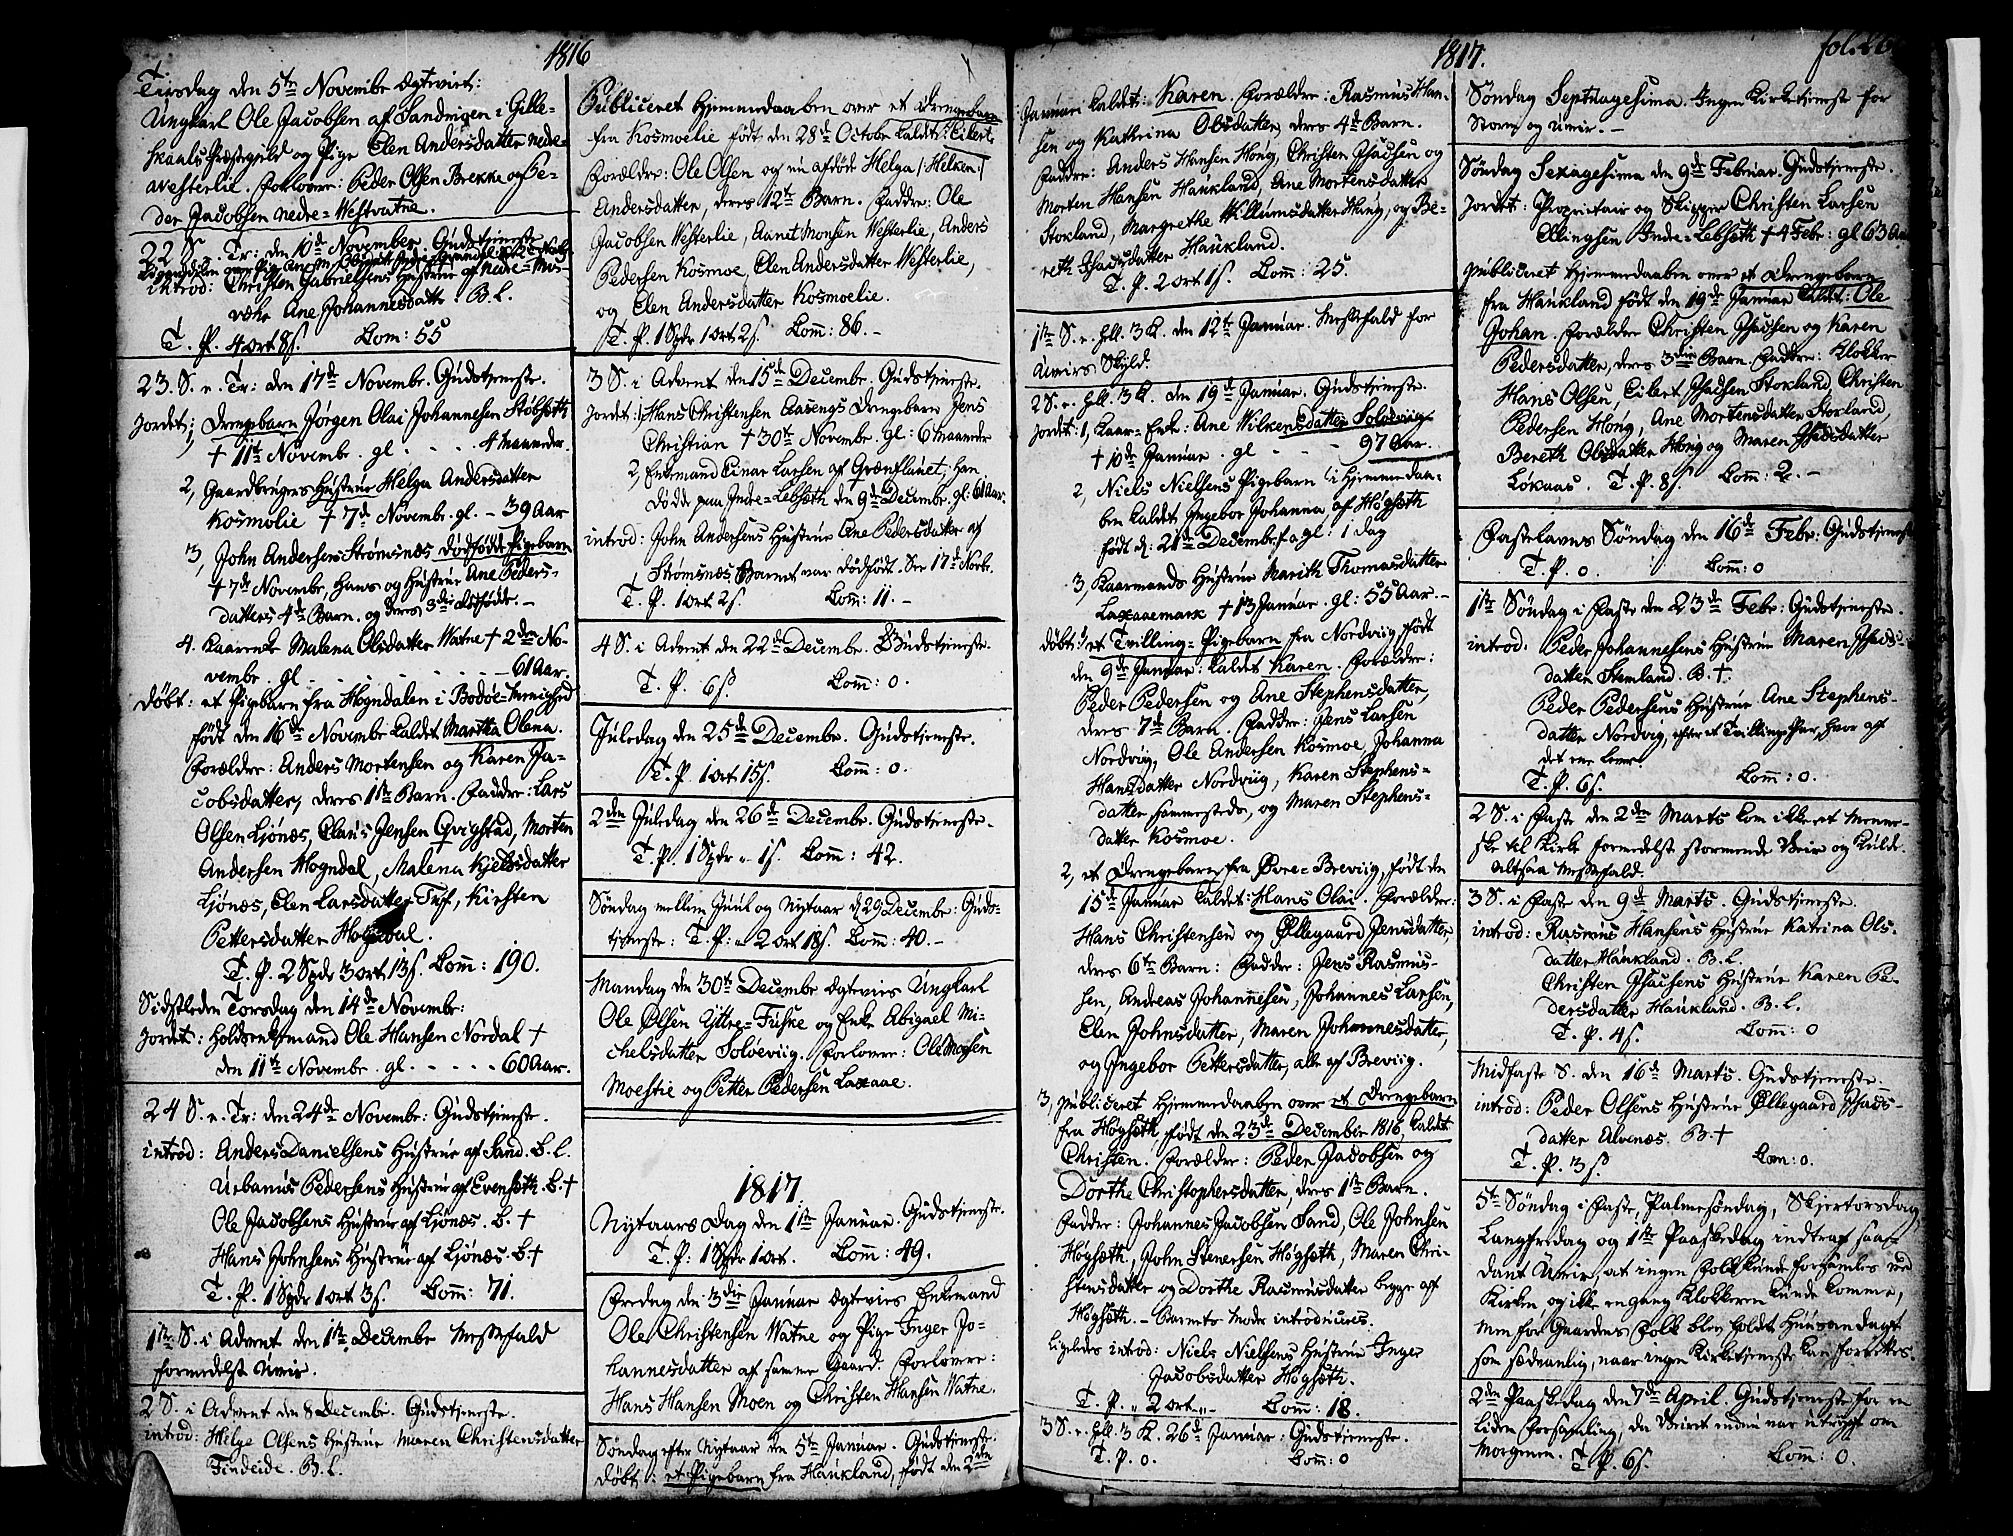 1816
Tirsdag den 5te Novembr ægtevict:
Ungkarl Ole Jacobsen af Sandvigen i Gille-
skaals Præstegield og Pige Elen Andersdatter nedre-
Westerlie. Forlovere: Peder Olsen Brekke og Pe-
der Jacobsen nedre-Westvatne.
22 S. e. Tr: den 10de November. Gudstjeneste
introd: Christen Gabrielsens Hustrue af Nedre-
Ane Johannesdatt: B. L.
T. P. 4 ort 8 s. Com: 55
23. S. e. Tr: den 17de Novembr. Gudstjeneste.
Jordet: 1, Drengebarn Jørgen Olai Johannesen Stobsøth
+ 11te Novembr. gl - - - 4 Maaneder.
2, Gaardbrugers Hustrue Helga Andersdatter
Kosmolie + 7de Novembr. gl. - 39 Aar
3, John Andersens Strømsnæs dødfødde Pigebarn
+ 7de Novembr, Hans og Hustrue Ane Peders-
datters 4de Barn. og deres 3die dødfødde. -
4. Kaarenke Malena Olsdatter Watne + 2den No-
vembr. gl - - - - 61 Aar
Døbt: et Pigebarn fra Hogndalen i Bodøe-Menighed
født den 16de Novembr kaldet Martha Olena.
Forældre: Anders Mortensen og Karen Ja-
cobsdatter, deres 1ste Barn. Faddre: Lars
Olsen Ljønæs, Claus Jensen Qvigstad, Morten
Andersen Hogndal, Malena Kjelsdatter
Ljønæs, Elen Larsdatter Tuf, Kirsten
Pettersdatter Hogndal.
T. P. 2 Spdr 3 ort 13 s. Com: 190.
Sidstleden Torsdag den 14de November:
Jordet: Holdsenkemand Ole Hansen Nordal +
den 11te Novembr. gl. - - - - - 60 Aar.
24 S. e. Tr: den 24de Novembr: Gudstjeneste.
introd: Anders Danielsens Hustrue af Sand. B. L.
Urbanus Pedersens Hustrue af Evensøth. B. +
Ole Jacobsens Hustrue af Ljønæs. B. +
Hans Johnsens Hustrue af Ljønæs. B. +
T. P. 1 Spdr 1 ort 3 s. Com: 71.
1ste S. i Advent den 1ste Decembr Messefald
formedelst Uveir.
2 S. i Advent den 8 Decembr. Gudstjeneste.
introd: Helge Olsens Hustrue Maren Christensdatter
Findeide. B. L.
Publiceret Hjemmedaaben over et Drengebarn
fra Kosmoelie født den 28de Octobr kaldet: Eilert
Forældre: Ole Olsen og nu afdøde Helga /: Helken :/
Andersdatter, deres 12te Barn. Faddre: Ole
Jacobsen Westerlie, Aanet Monsen Westerlie, Anders
Pedersen Kosmoe, Elen Andersdatter Westerlie,
og Elen Andersdatter Kosmoelie.
T. P. 1 Spdr 1 ort 2 s. Com: 86. -
3 S. i Advent den 15de Decembr. Gudstjeneste.
Jordet: 1, Hans Christensen Aasengs Drengebarn Jens
Christian + 30te Novembr. gl: 6 Maaneder
2, Enkemand Einar Larsen af Grønflauet; han
døde paa Indre-Lebsøth den 9de Decembr. gl: 61 Aar.
introd: John Andersens Hustrue Ane Pedersdatter af
Strømsnæs Barnet var dødfødt. See 17de Novbr.
T. P. 1 ort 2 s. Com: 11. -
4 S. i Advent den 22de Decembr. Gudstjeneste.
T. P. 6 s. Com: 0.
Juledag den 25de Decembr. Gudstjeneste.
T. P. 1 ort 15 s. Com: 0.
2den Juledag den 26de Decembr. Gudstjeneste.
T. P. 1 Spdr " 1 s. Com: 42.
Søndag mellem Juul og Nytaar d 29 Decembr: Guds-
tjeneste: T. P. " 2 ort 18 s. Com: 40. -
Mandag den 30te Decembr ægtevies Ungkarl
Ole Olsen Yttre-Fuske og Enke Abigael Mi-
chelsdatter Soløeviig. Forlovere: Ole Monsen
Moestie og Petter Pedersen Laxaae.
1817.
Nytaars Dag den 1ste Januar. Gudstjeneste.
T. P: 1 Spdr 1 ort. Com: 49.
Fredag den 3die Januar ægtevies Enkemand
Ole Christensen Watne og Pige Inger Jo-
hannesdatter af samme Gaard. Forlovere:
Hans Hansen Moen og Christen Hansen Watne.
Søndag efter Nytaar den 5te Januar. Gudstjeneste.
Døbt: et Pigebarn fra Haukland, født den 2den
1817.
Januar kaldet: Karen. Forældre: Rasmus Han-
sen og Kathrina Olsdatter, deres 4de Barn.
Faddre: Anders Hansen Hong, Christen Isacsen og
Morten Hansen Haukland, Ane Mortensdatter
Stokland, Margrethe Willumsdatter Hong, og Be-
reth Isacsdatter Haukland.
T. P. 2 ort 1 s. Com: 25.
1ste S. e. Hell. 3 K. den 12te Januar. Messefald for
Uveirs Skyld.
2 S. e. Hell. 3 K. den 19de Januar. Gudstjeneste.
Jordet: 1, Kaar-Enke: Ane Wilkensdatter Soløeviig
+ 10de Januar. gl - - - 97 Aar.
2, Niels Nielsens Pigebarn i Hjemmedaa-
ben kaldet Ingebor Johanna af Høgsøth
født d: 21de Decembr. gl: 1 Dag
3, Kaarmands Hustrue Marith Thomasdatter
Laxaaemark + 13 Januar. gl: 55 Aar.-
Døbt: 1, et Tvilling-Pigebarn fra Nordviig født
den 9de Januar: kaldet Karen. Forældre:
Peder Pedersen og Ane Stephensdatter,
deres 7de Barn. Faddre: Jens Larsen
Nordviig, Ole Andersen Kosmoe, Johanna
Hansdatter Nordviig, Karen Stephens-
datter sammesteds, og Maren Stephens-
datter Kosmoe.
2, et Drengebarn fra Øvre-Breviig, født den
15de Januar kaldet: Hans Olai. Forældre:
Hans Christensen og Øllegaard Jensdatter,
deres 6te Barn: Faddre: Jens Rasmus-
sen, Andreas Johannesen, Johannes Larsen,
Elen Johnsdatter, Maren Johannesdatter,
og Ingebor Pettersdatter, alle af Breviig.
3, Publiceret Hjemmedaaben over et Drengebarn
fra Høgsøth, født den 23de December 1816, kaldet
Christen. Forældre: Peder Jacobsen og
Dorthe Christophersdatter, deres 1ste Barn.
Faddre: Johannes Jacobsen Sand, Ole Johnsen
Høgsøth, John Stenersen Høgsøth, Maren Chri-
stensdatter og Dorthe Rasmusdatter begge af
Høgsøth. - Barnets Moder introduceres.
Ligeledes introd: Niels Nielsens Hustrue Inger
Jacobsdatter Høgsøth.
T. P. " 2 ort "- Com: 18.
3 S. e. Hell. 3 K. 26de Januar: Gudstjeneste.
T. P. 0. Com: 0
fol.
Søndag Septuagesima. Ingen Kirketjeneste for
Storm og Uveir. -
Søndag Sexagesima den 9de Februar. Gudstjeneste.
Jordet: Proprietair og Skipper Christen Larsen
Ellingsen Indre-Lebsøth + 4 Febr: gl 63 Aar
Publiceret Hjemmedaaben over et Drengebarn
fra Haukland født den 19de Januar kaldet: Ole
Johan. Forældre Christen Isacsen og Karen
Pedersdatter, deres 3die Barn. Faddre: Klokker
Hans Olsen, Eilert Isacsen Stokland, Christen
Pedersen Hong, Ane Mortensdatter Storland,
Bereth Olsdatter Hong og Maren Isacsdatter
Løkaas. T. P. 8 s. Com: 2. -
Fastelavns Søndag den 16de Febr: Gudstjeneste
T. P. 0. Com: 0
1ste Søndag i Faste den 23de Febr: Gudstjeneste.
introd: Peder Johannesens Hustrue Maren Isacs-
datter Stemland. B. +.
Peder Pedersens Hustrue Ane Stephens-
datter Nordvig, efter et Tvillinge Par, hvor af
det ene lever.
T. P. 6 s. Com: 0.
2 S. i Faste den 2de Marts kom ikke et Menne-
ske til Kirke formedelst stormende Veir og Kulde.
Altsaa Messefald.
3 S. i Faste den 9de Marts. Gudstjeneste.
introd: Rasmus Hansens Hustrue Katrina Ols-
datter Haukland. B. L.
Christen Isacsens Hustrue Karen Pe-
dersdatter Haukland. B. L.
T. P. 4 s. Com: 0
Midfaste S. den 16de Marts. Gudstjeneste
introd: Peder Olsens Hustrue Øllegaard Isacs-
datter Alvenæs. B. +
T. P. 3 s. Com: 0.
5te Søndag i Faste, Palmesøndag, Skjertorsdag
Langfredag og 1ste Paaskedag indtraf saa-
dant Uveir, at ingen Folk kunde forsamles ved
Kirken og ikke engang Klokkeren kunde komme,
men for Gaardens Folk blev holdt Huusandagt
som sædvanlig, naar ingen Kirketjeneste kan forrettes.
2den Paaskedag den 7de April. Gudstjeneste for en
liden Forsamling, da Veiret endnu var utrygt om
Morgenen. T. P. 6 s. Com: 0.